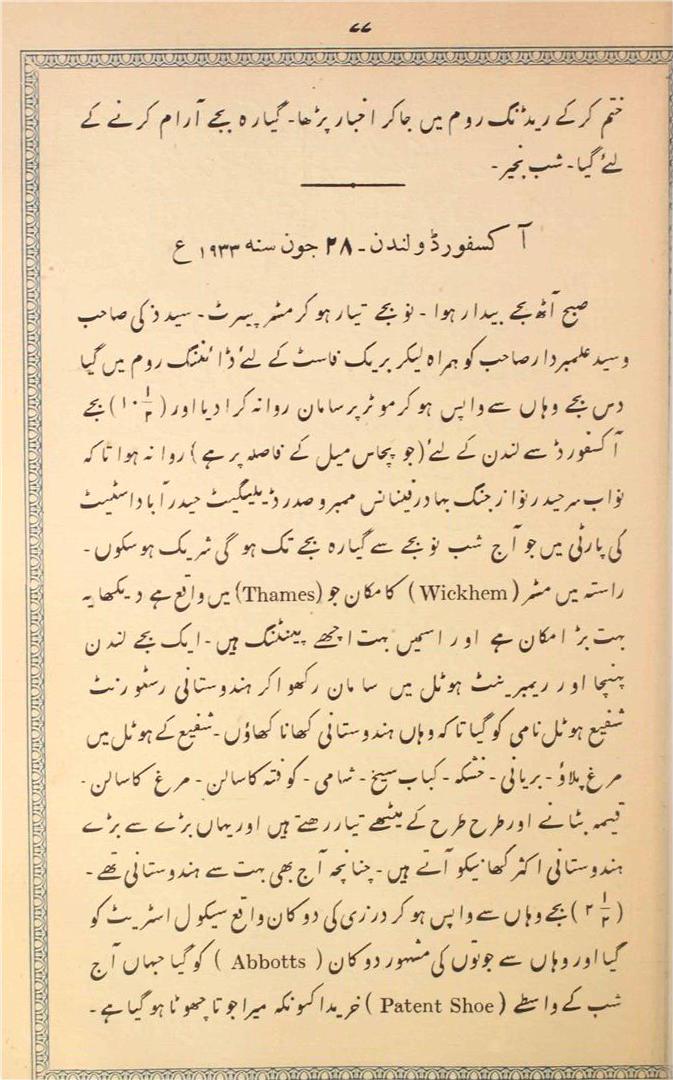 ۷۷
ختم کرکے ریڈنگ روم میں جاکر اخبار پڑھا۔ گیارہ بجے آرام کرنے کے
لئے گیا۔ شب بخیر۔
آکسفورڈ و لندن۔ ۲۸ جون سنه ۱۹۳۳ ع
صبح آٹھ بجے بیدار ہوا۔ نو بجے تیار ہو کر مسٹر پیرٹ۔ سید ذکی صاحب
و سید علمبردار صاحب کو ہمراہ لیکر بریک فاسٹ کے لئے ڈائننگ روم میں گیا
دس بجے وہاں سے واپس ہو کر موٹر پر سامان روانہ کرا دیا اور (۱۰ ۱/۲) بجے
آکسفورڈ سے لندن کے لئے (جو پچاس میل کے فاصلہ پر ہے) روانہ ہوا تاکہ
نواب سر حیدر نواز جنگ بہادر فینانس ممبر و صدر ڈیلیگیٹ حیدرآباد اسٹیٹ
کی پارٹی میں جو آج شب نو بجے سے گیارہ بجے تک ہو گی شریک ہو سکوں۔
راستہ میں مسٹر (Wickhem) کا مکان جو (Thames) میں واقع ہے دیکھا یہ
بہت بڑا مکان ہے اور اسمیں بہت اچھے پینٹنگ ہیں۔ ایک بجے لندن
پہنچا اور ریمبرینٹ ہوٹل میں سامان رکھوا کر ہندوستانی رسٹورنٹ
شفیع ہوٹل نامی کو گیا تاکہ وہاں ہندوستانی کھانا کھاؤں۔ شفیع کے ہوٹل میں
مرغ پلاؤ۔ بریانی۔ خشکہ۔ کباب سیخ۔ شامی۔ کوفتہ کا سالن۔ مرغ کا سالن۔
قیمہ بٹانے اور طرح طرح کے میٹھے تیار رہتے ہیں اور یہاں بڑے سے بڑے
ہندوستانی اکثر کھانیکو آتے ہیں۔ چنانچہ آج بھی بہت سے ہندوستانی تھے۔
(۲ ۱/۲) بجے وہاں سے واپس ہو کر درزی کی دوکان واقع سیکول اسٹریٹ کو
گیا اور وہاں سے جوتوں کی مشہور دوکان (Abbotts) کو گیا جہاں آج
شب کے واسطے (Patent Shoe) خریدا کیونکہ میرا جوتا چھوٹا ہو گیا ہے۔